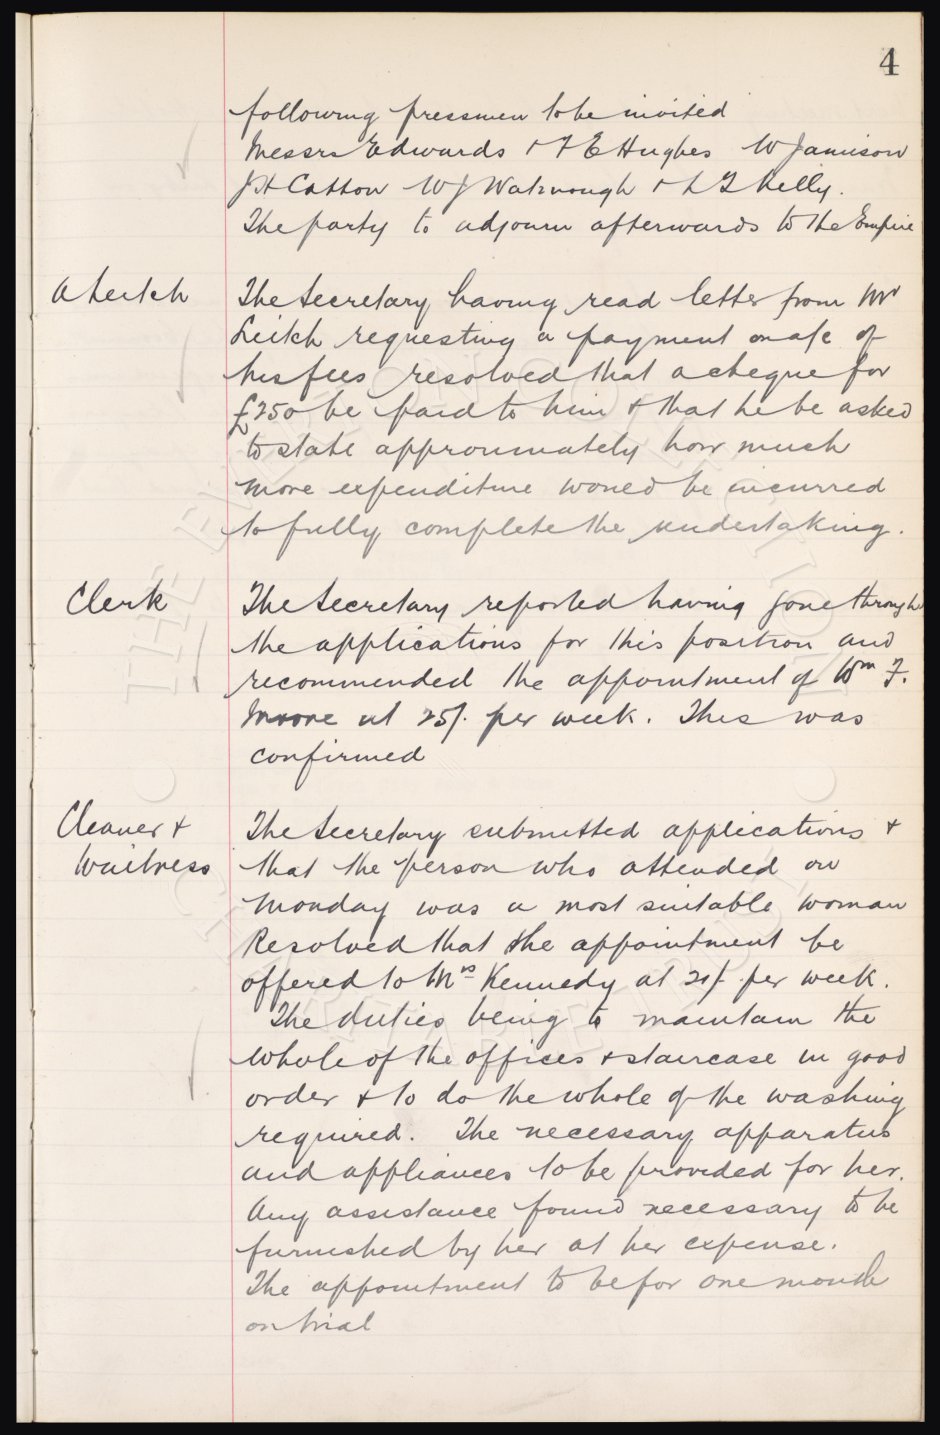 4
following pressmen to be invited
Messrs Edwards & F E Hughes W Jamieson
J H Catton W J Watmough & L T Kelly.
The party to adjourn afterwards to the Empire
A Leitch
The Secretary having read letter from Mr
Leitch requesting a payment on a/c of
his fees resolved that a cheque for
£250 be paid to him & that he be asked
to state approximately how much
more expenditure would be incurred
to fully complete the undertaking.
Clerk
The Secretary reported having gone through
the applications for this position and
recommended the appointment of Wm F.
Moore at 25/. per week. This was
confirmed
Cleaner &
Waitress
The Secretary submitted applications &
that the person who attended on
Monday was a most suitable woman
Resolved that the appointment be
offered to Mrs Kennedy at 20/. per week.
The duties being to maintain the
whole of the offices & staircase in good
order & to do the whole of the washing
required. The necessary apparatus
and appliances to be provided for her.
Any assistance found necessary to be
furnished by her at her expense.
The appointment to be for one month
on trial